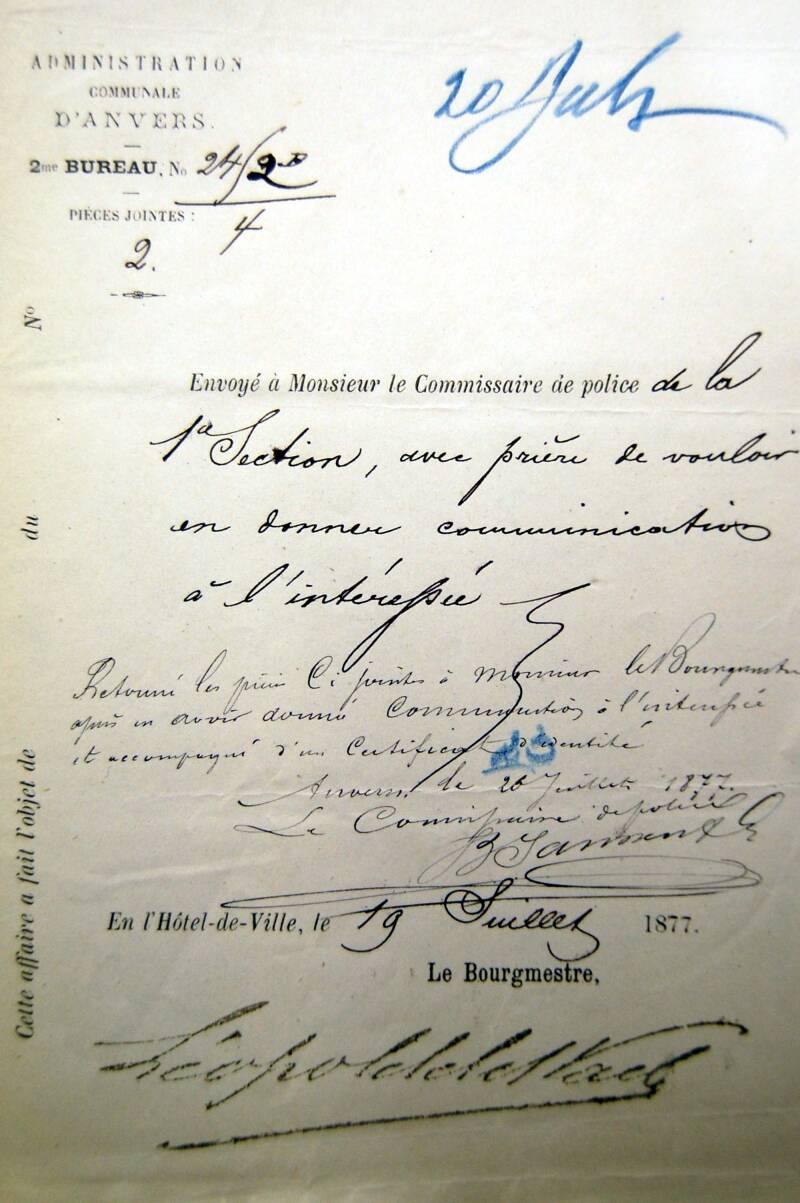 ADMINISTRATION
COMMUNALE
D'ANVERS.
2me BUREAU, No 24/2
4
PIÈCES JOINTES :
2.
20 July
No
du
Cette affaire a fait l'objet de
Envoyé à Monsieur le Commissaire de police de la
1e Section, avec prière de vouloir
en donner communication
à l'intéressée
Retourné les pièces Ci joints à Monsieur le Bourgmestre
après en avoir donné Communication à l'intéressée
et accompagné d'un Certificat d'identité
Anvers le 26 Juillet 1877.
Le Commissaire de police
En l'Hôtel-de-Ville, le 19 Juillet 1877.
Le Bourgmestre,
Léopold de Wael